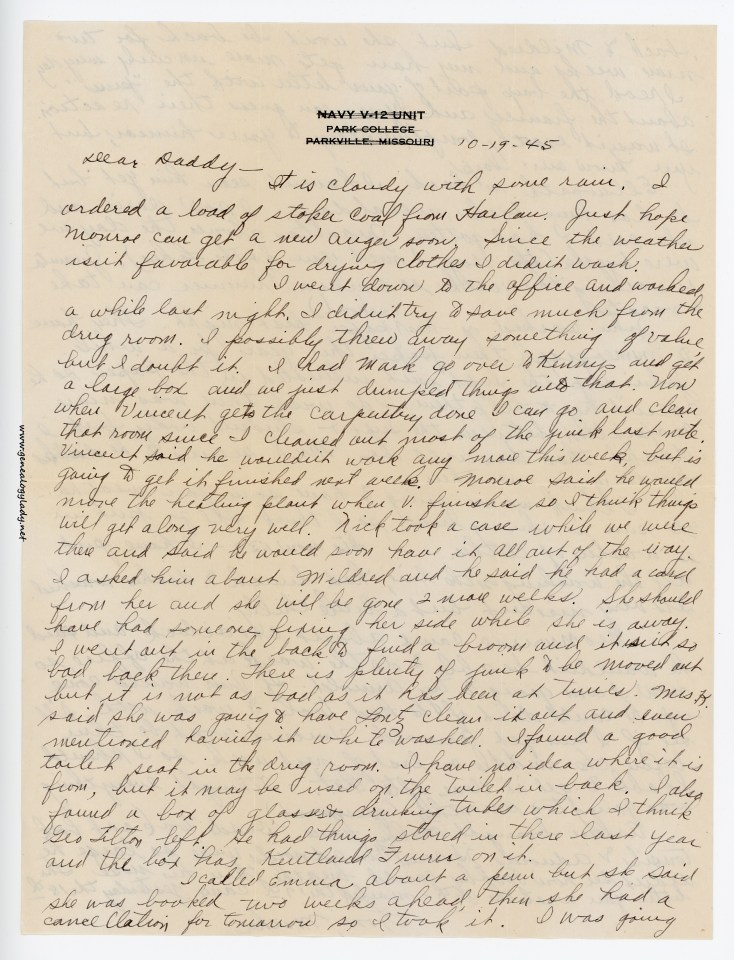 NAVY V-12 UNIT
PARK COLLEGE
PARKVILLE, MISSOURI
10-19-45
Dear Daddy—
It is cloudy with some rain. I
ordered a load of stoker coal from Harlan. Just hope
Monroe can get a new auger soon. Since the weather
isn't favorable for drying clothes I didn't wash.
I went down to the office and worked
a while last night. I didn't try to save much from the
drug room. I possibly threw away something of value
but I doubt it. I had Mark go over to Kennys and get
a large box and we just dumped things into that. Now
when Vincent gets the carpentry done I can go and clean
that room since I cleaned out most of the junk last nite.
Vincent said he wouldn't work any more this week, but is
going to get it finished next week. Monroe said he would
move the heating plant when V. finishes so I think things
will get along very well. Dick took a case while we were
there and said he would soon have it all out of the way.
I asked him about Mildred and he said he had a card
from her and she will be gone 2 more weeks. She should
have had someone fixing her side while she is away.
I went out in the back to find a broom and it isn't so
bad back there. There is plenty of junk to be moved out
but it is not as bad as it has been at times. Mrs. H.
said she was going to have clean it out and even
mentioned having it white washed. I found a good
toilet seat in the drug room. I have no idea where it is
from, but it may be used on the toilet in back. I also
found a box of glasses & drinking tubes which I think
Geo Tilton left. He had things stored in there last year
and the box has Kirtland on it.
I called Emma about a perm but sh said
she was booked two weeks ahead, then she had a
cancellation for tomorrow so I took it. I was going
www.genealogylady.net